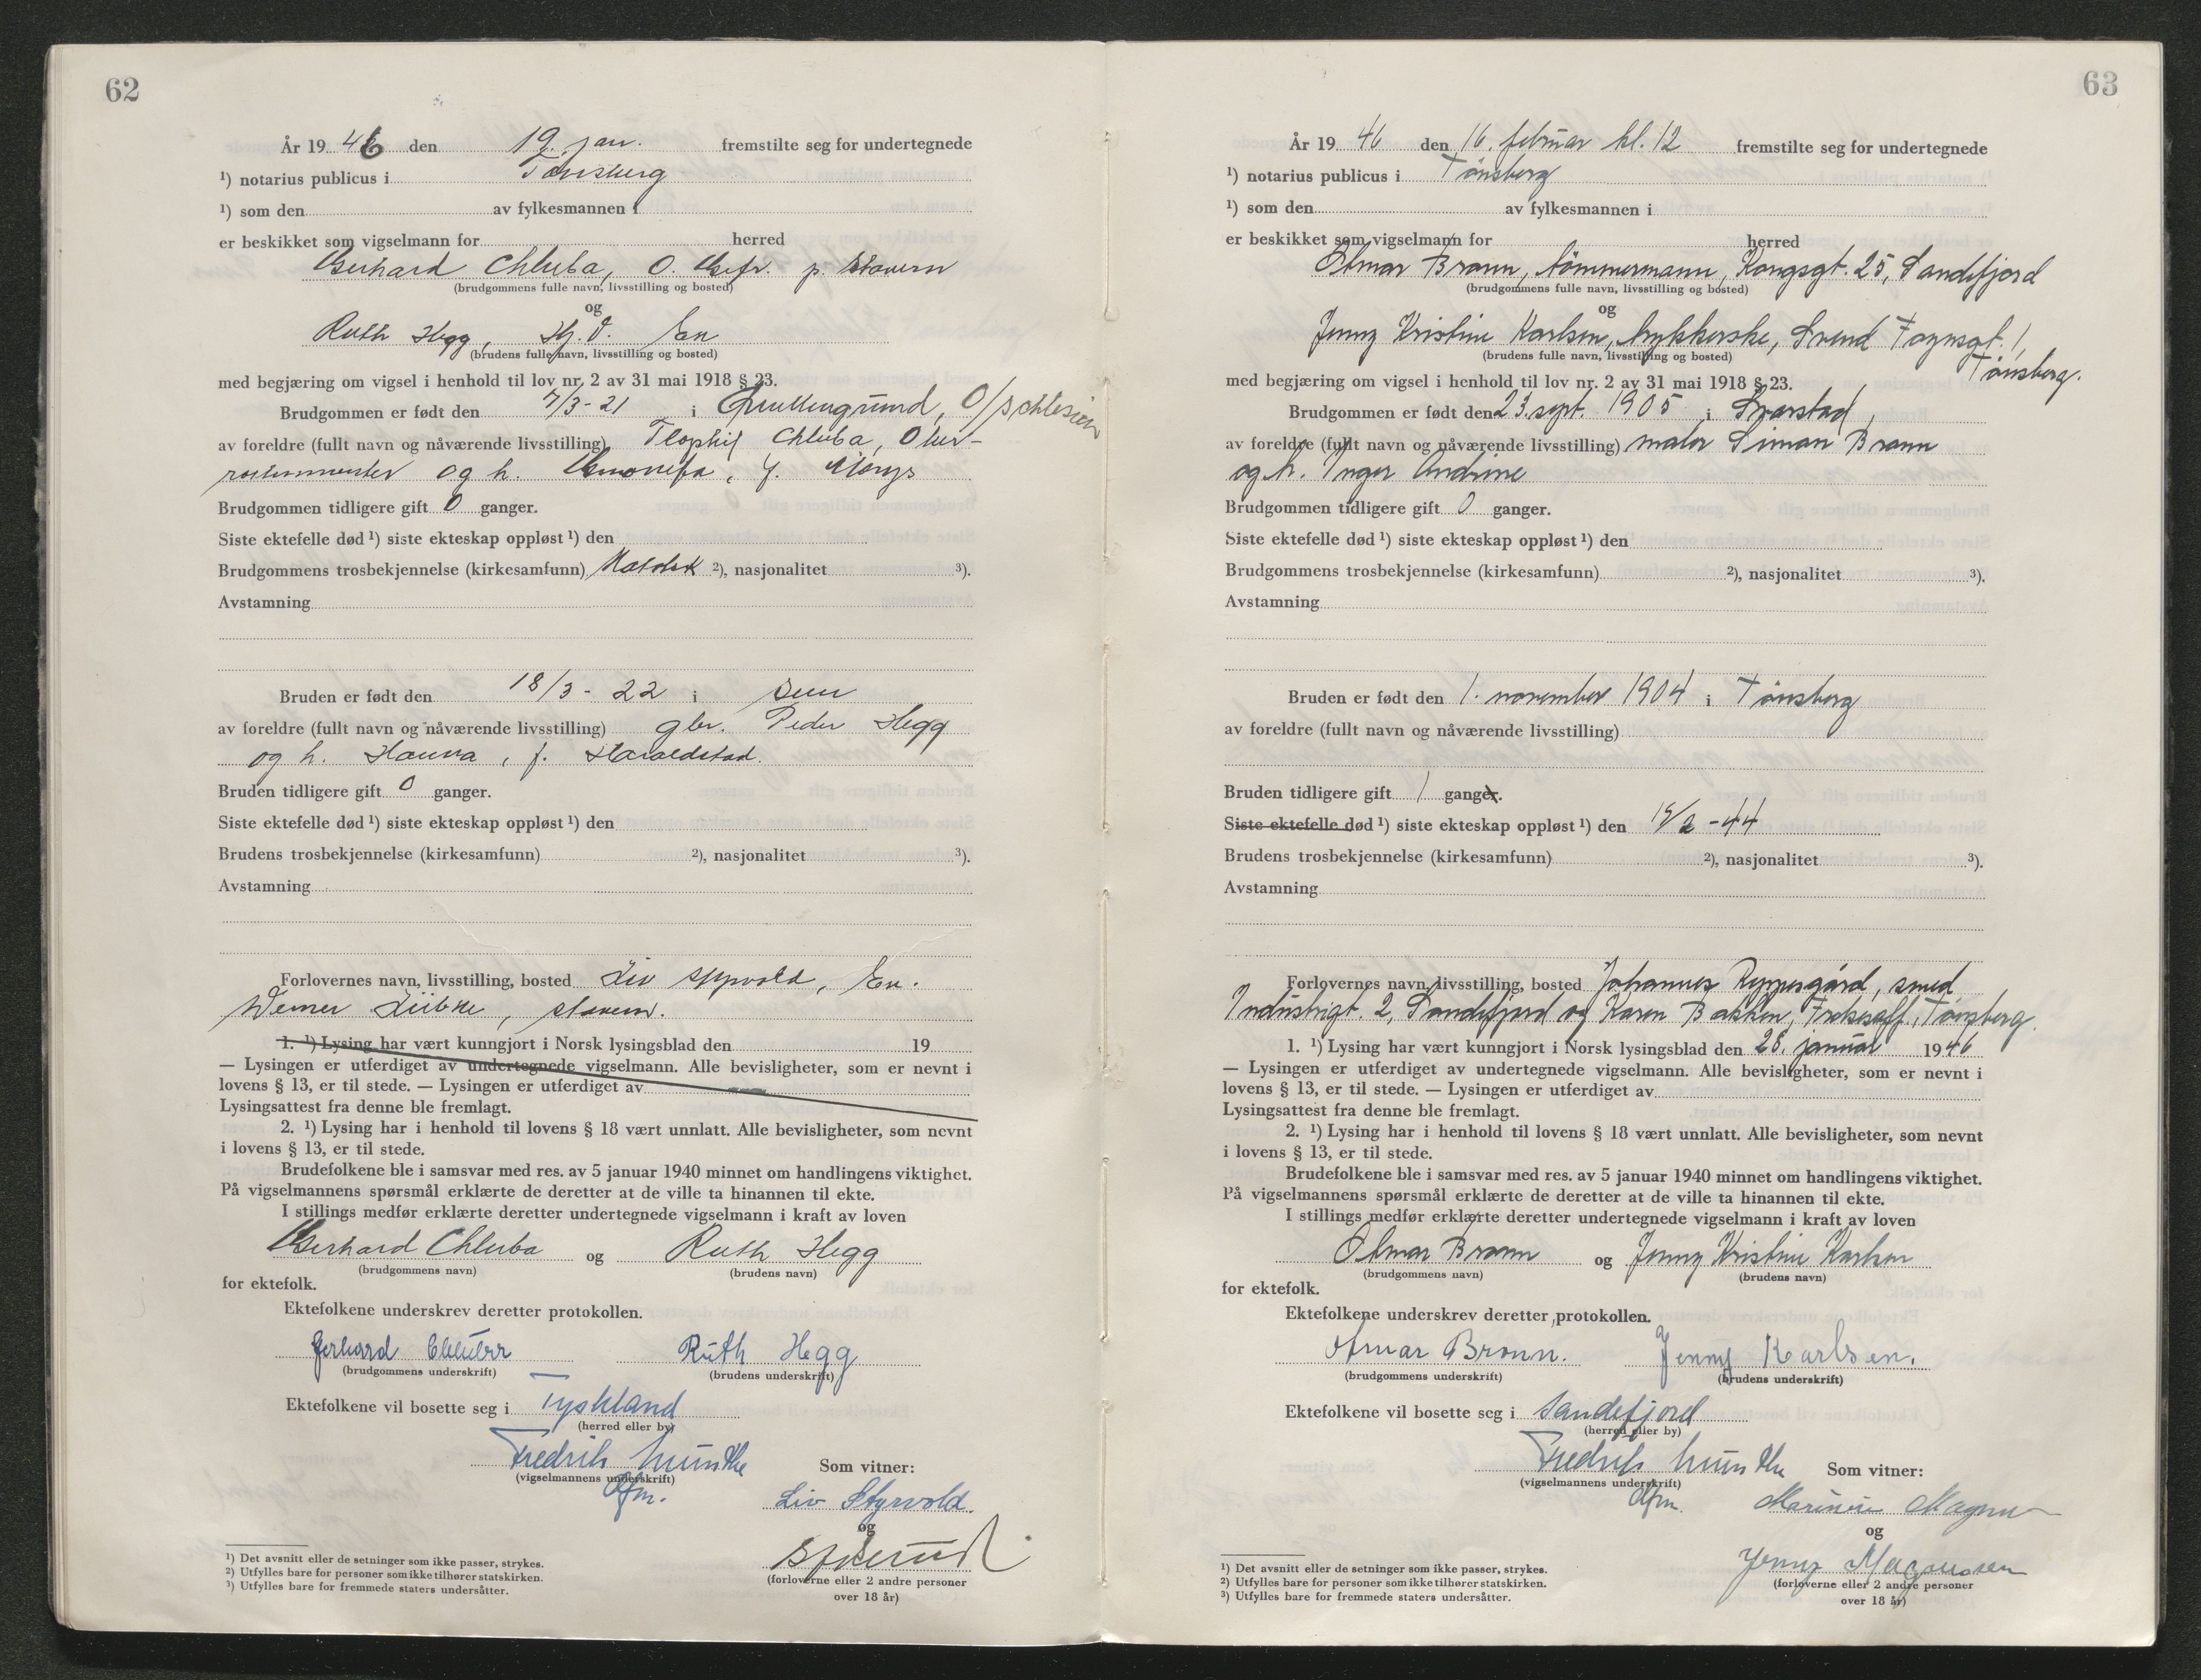 62
År 19 46 den 19. jan. fremstilte seg for undertegnede
¹) notarius publicus i Tønsberg
¹) som den av fylkesmannen i
er beskikket som vigselmann for herred
Gerhard Chluba, O. Gefr. p. Stavern
(brudgommens fulle navn, livsstilling og bosted)
og
Ruth Hegg, Sem
(brudens fulle navn, livsstilling og bosted)
med begjæring om vigsel i henhold til lov nr. 2 av 31 mai 1918 § 23.
Brudgommen er født den 7/3-21 i O/Schlesien
av foreldre (fullt navn og nåværende livsstilling) Chluba, Ober-
og h. f.
Brudgommen tidligere gift 0 ganger.
Siste ektefelle død ¹) siste ekteskap oppløst ¹) den
Brudgommens trosbekjennelse (kirkesamfunn) Katolsk ²), nasjonalitet ³).
Avstamning
Bruden er født den 18/3-22 i Sem
av foreldre (fullt navn og nåværende livsstilling) gbr. Peder Hegg
og h. Hanna, f. Haraldstad.
Bruden tidligere gift 0 ganger.
Siste ektefelle død ¹) siste ekteskap oppløst ¹) den
Brudens trosbekjennelse (kirkesamfunn) ²), nasjonalitet ³).
Avstamning
Forlovernes navn, livsstilling, bosted Liv Styrvold, Sem.
Werner Lübke, Stavern.
1. ¹) Lysing har vært kunngjort i Norsk lysingsblad den 19
— Lysingen er utferdiget av undertegnede vigselmann. Alle bevisligheter, som er nevnt i
lovens § 13, er til stede. — Lysingen er utferdiget av
Lysingsattest fra denne ble fremlagt.
2. ¹) Lysing har i henhold til lovens § 18 vært unnlatt. Alle bevisligheter, som nevnt
i lovens § 13, er til stede.
Brudefolkene ble i samsvar med res. av 5 januar 1940 minnet om handlingens viktighet.
På vigselmannens spørsmål erklærte de deretter at de ville ta hinannen til ekte.
I stillings medfør erklærte deretter undertegnede vigselmann i kraft av loven
Gerhard Chluba og Ruth Hegg
(brudgommens navn) (brudens navn)
for ektefolk.
Ektefolkene underskrev deretter protokollen.
Gerhard Chluba Ruth Hegg
(brudgommens underskrift) (brudens underskrift)
Ektefolkene vil bosette seg i Tyskland
(herred eller by)
Fredrik Munthe
(vigselmannens underskrift) Som vitner:
Liv Styrvold.
og
(forloverne eller 2 andre personer
over 18 år)
¹) Det avsnitt eller de setninger som ikke passer, strykes.
²) Utfylles bare for personer som ikke tilhører statskirken.
³) Utfylles bare for fremmede staters undersåtter.
63
År 19 46 den 16. februar kl. 12 fremstilte seg for undertegnede
¹) notarius publicus i Tønsberg
¹) som den av fylkesmannen i
er beskikket som vigselmann for herred
Otmar Bronn, tømmermann, Kongsgt. 25, Sandefjord
(brudgommens fulle navn, livsstilling og bosted)
og
Jenny Kristine Karlsen, trykkerske, Svend Foynsgt. 1,
(brudens fulle navn, livsstilling og bosted) Tønsberg.
med begjæring om vigsel i henhold til lov nr. 2 av 31 mai 1918 § 23.
Brudgommen er født den 23. sept. 1905 i Svarstad,
av foreldre (fullt navn og nåværende livsstilling) maler Simon Bronn
og h. Inger Andrine
Brudgommen tidligere gift 0 ganger.
Siste ektefelle død ¹) siste ekteskap oppløst ¹) den
Brudgommens trosbekjennelse (kirkesamfunn) ²), nasjonalitet ³).
Avstamning
Bruden er født den 1. november 1904 i Tønsberg
av foreldre (fullt navn og nåværende livsstilling)
Bruden tidligere gift 1 ganger.
Siste ektefelle død ¹) siste ekteskap oppløst ¹) den /2-44
Brudens trosbekjennelse (kirkesamfunn) ²), nasjonalitet ³).
Avstamning
Forlovernes navn, livsstilling, bosted Johannes Ryppesgård, smed
Industrigt. 2, Sandefjord og Karen Bakken, Tønsberg.
1. ¹) Lysing har vært kunngjort i Norsk lysingsblad den 28. januar 1946
— Lysingen er utferdiget av undertegnede vigselmann. Alle bevisligheter, som er nevnt i
lovens § 13, er til stede. — Lysingen er utferdiget av
Lysingsattest fra denne ble fremlagt.
2. ¹) Lysing har i henhold til lovens § 18 vært unnlatt. Alle bevisligheter, som nevnt
i lovens § 13, er til stede.
Brudefolkene ble i samsvar med res. av 5 januar 1940 minnet om handlingens viktighet.
På vigselmannens spørsmål erklærte de deretter at de ville ta hinannen til ekte.
I stillings medfør erklærte deretter undertegnede vigselmann i kraft av loven
Otmar Bronn og Jenny Kristine Karlsen
(brudgommens navn) (brudens navn)
for ektefolk.
Ektefolkene underskrev deretter protokollen.
Otmar Bronn. Jenny Karlsen.
(brudgommens underskrift) (brudens underskrift)
Ektefolkene vil bosette seg i Sandefjord
(herred eller by)
Fredrik Munthe
(vigselmannens underskrift) Som vitner:
og
Jenny Magnussen
(forloverne eller 2 andre personer
over 18 år)
¹) Det avsnitt eller de setninger som ikke passer, strykes.
²) Utfylles bare for personer som ikke tilhører statskirken.
³) Utfylles bare for fremmede staters undersåtter.